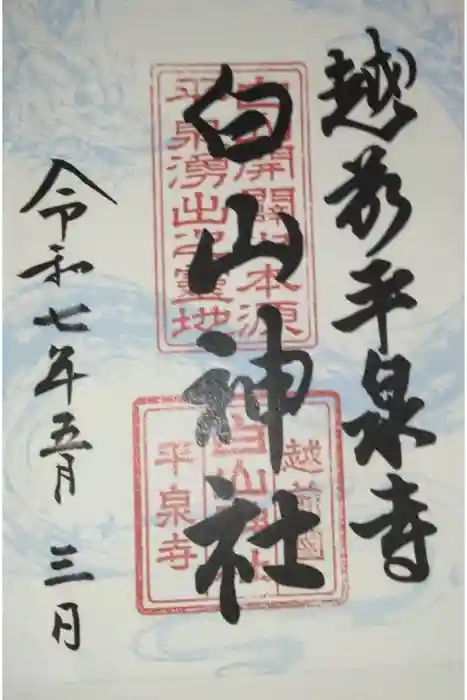 越前平泉寺
白山神社
令和七年五月三日
白山開闢之本源
平泉湧出之霊地
越前國
白山神社
平泉寺